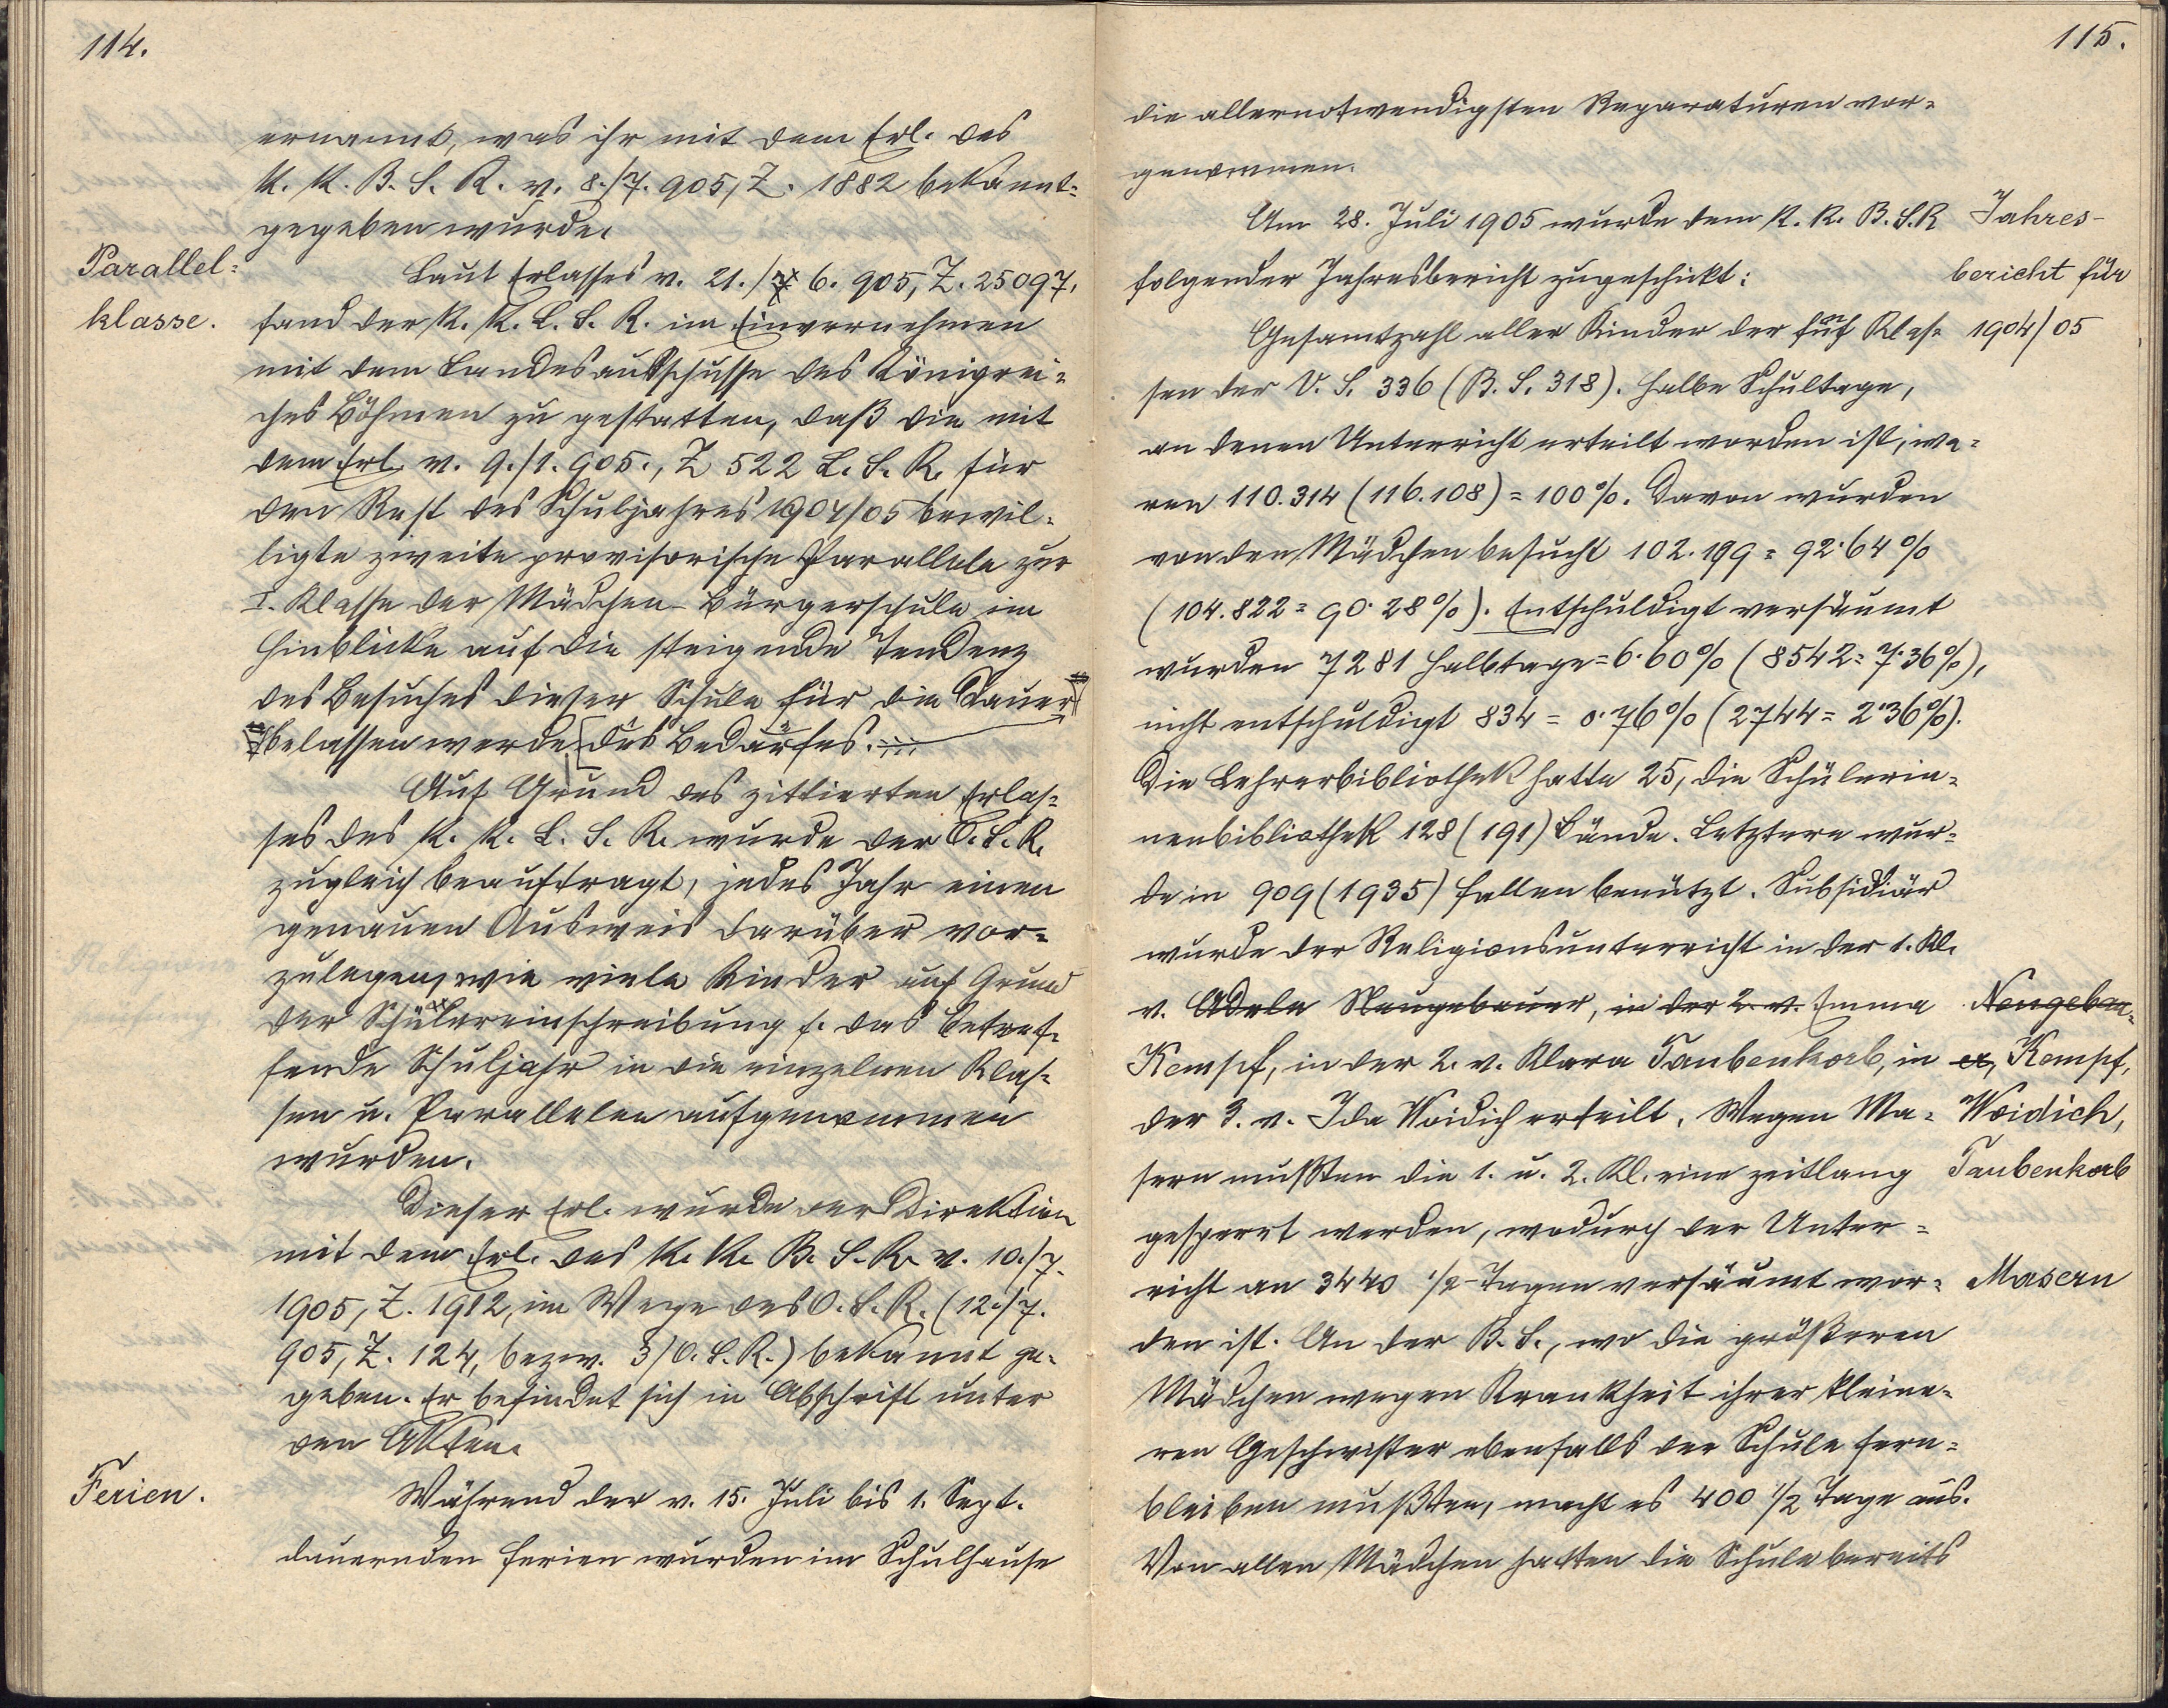 114.
ernannt, was ihr mit dem Erl. des
K. K. B. S. R. v. 8./7. 905, Z. 1882 bekannt-
gegeben wurde.
Parallel-
klasse.
Laut Erlasses v. 21./7 6. 905, Z. 25097,
fand der K. K. L. S. R. im Einvernehmen
mit dem Landesausschusse des Königrei-
ches Böhmen zu gestatten, daß die mit
dem Erl. v. 9./1. 905., Z 522 L. S. R. für
den Rest des Schuljahres 1904/05 bewil-
ligte zweite provisorische Parallele zur
I. Klasse der Mädchen-Bürgerschule im
Hinblicke auf die steigende Tendenz
des Besuches dieser Schule für die Dauer
belassen werde [des Bedarfes.
Auf Grund des zittierten Erlas-
ses des K. K. L. S. R. wurde der O. S. R.
zugleich beauftragt, jedes Jahr einen
genauen Ausweis darüber vor-
zulegen, wie viele Kinder auf Grund
der Schülereinschreibung f. das betref-
fende Schuljahr in die einzelnen Klas-
sen u. Parallelen aufgenommen
wurden.
Dieser Erl. wurde der Direktion
mit dem Erl. des K. K. B. S. R. v. 10./7.
1905, Z. 1912, im Wege des O. S. R. (12./7.
905, Z. 124, bezw. 3/O. S. R.) bekannt ge-
geben. Er befindet sich in Abschrift unter
den Akten.
Ferien.
Während der v. 15. Juli bis 1. Sept.
dauernden Ferien wurden im Schulhause
115.
die allernotwendigsten Reparaturen vor-
genommen.
Am 28. Juli 1905 wurde dem K. K. B. S. R
folgender Jahresbericht zugeschickt:
Jahres-
bericht für
1904/05
Gesamtzahl aller Kinder der fünf Klas-
sen der V. S. 336 (B. S. 318). Halbe Schultage,
an denen Unterricht erteilt worden ist, wa-
ren 110.314 (116.108) = 100%. Davon wurden
von den Mädchen besucht 102.199 = 92·64%
(104.822 = 90·28%). Entschuldigt versäumt
wurden 7281 Halbtage = 6·60% (8542 = 7·36%),
nicht entschuldigt 834 = 0·76% (2744 = 2·36%).
Die Lehrerbibliothek hatte 25, die Schülerin-
nenbibliothek 128 (191) Bände. Letztere wur-
de in 909 (1935) Fällen benützt. Subsidiär
wurde der Religionsunterricht in der 1. Kl.
v. Adele Neugebauer, in der 2. v. Emma
Kempf, in der 2. v. Klara Taubenkorb, in
der 3. v. Ida Woidich erteilt. Wegen Ma-
sern mußten die 1. u. 2. Kl. eine zeitlang
gesperrt werden, wodurch der Unter-
richt an 3440 1/2-Tagen versäumt wor-
den ist. An der B. S., wo die größeren
Mädchen wegen Krankheit ihrer kleine-
ren Geschwister ebenfalls der Schule fern-
bleiben mußten, macht es 400 1/2 Tage aus.
Von allen Mädchen hatten die Schule bereits
Neugebau-
er, Kempf,
Woidich,
Taubenkorb
Masern